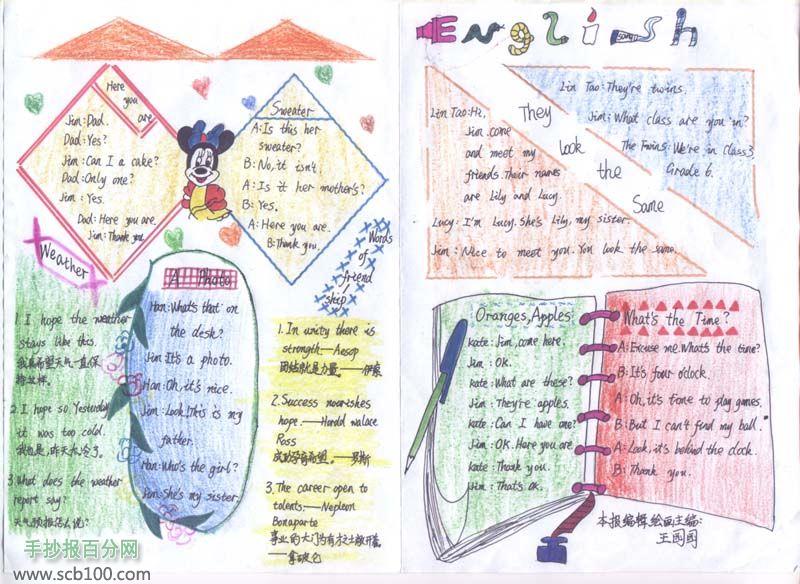 Here
you
are
Jim: Dad.
Dad: Yes?
Jim: Can I a cake?
Dad: Only one?
Jim: Yes.
Dad: Here you are.
Jim: Thank you.
Sweater
A: Is this her
sweater?
B: No, it isn't.
A: Is it her mother's?
B: Yes.
A: Here you are.
B: Thank you.
Weather
1. I hope the weather
stays like this.
我真希望天气一直保
持这样.
2. I hope so. Yesterday
it was too cold.
我也是,昨天太冷了.
3. What does the weather
report say?
天气预报怎么说?
A Photo
Han: What's that on
the desk?
Jim: It's a photo.
Han: Oh, it's nice.
Jim: Look! This is my
father.
Han: Who's the girl?
Jim: She's my sister.
Words
of
friend
ship
1. In unity there is
strength.—Aesop
团结就是力量。——伊索
2. Success nourishes
hope.—Harold walace
Ross
成功孕育希望。——罗斯
3. The career open to
talents.—Nepleon
Bonaparte
事业的大门为有才之士敞开.
——拿破仑
手抄报百分网
www.scb100.com
English
They
look
the
Same
Lin Tao: Hi,
Jim. come
and meet my
friends. Their names
are Lily and Lucy.
Lucy: I'm Lucy. She's Lily, my sister.
Jim: Nice to meet you. You look the same.
Lin Tao: They're twins.
Jim: What class are you in?
The Twins: We're in class3,
Grade 6.
Oranges, Apples.
kate: Jim, come here.
Jim: OK.
kate: What are these?
Jim: They're apples.
kate: Can I have one?
Jim: OK. Here you are
kate: Thank you.
Jim: That's OK.
What's the Time?
A: Excuse me. What's the time?
B: It's four o'clock.
A: Oh, it's time to play games.
B: But I can't find my ball.
A: Look, it's behind the clock.
B: Thank you.
本报编辑绘画主编: